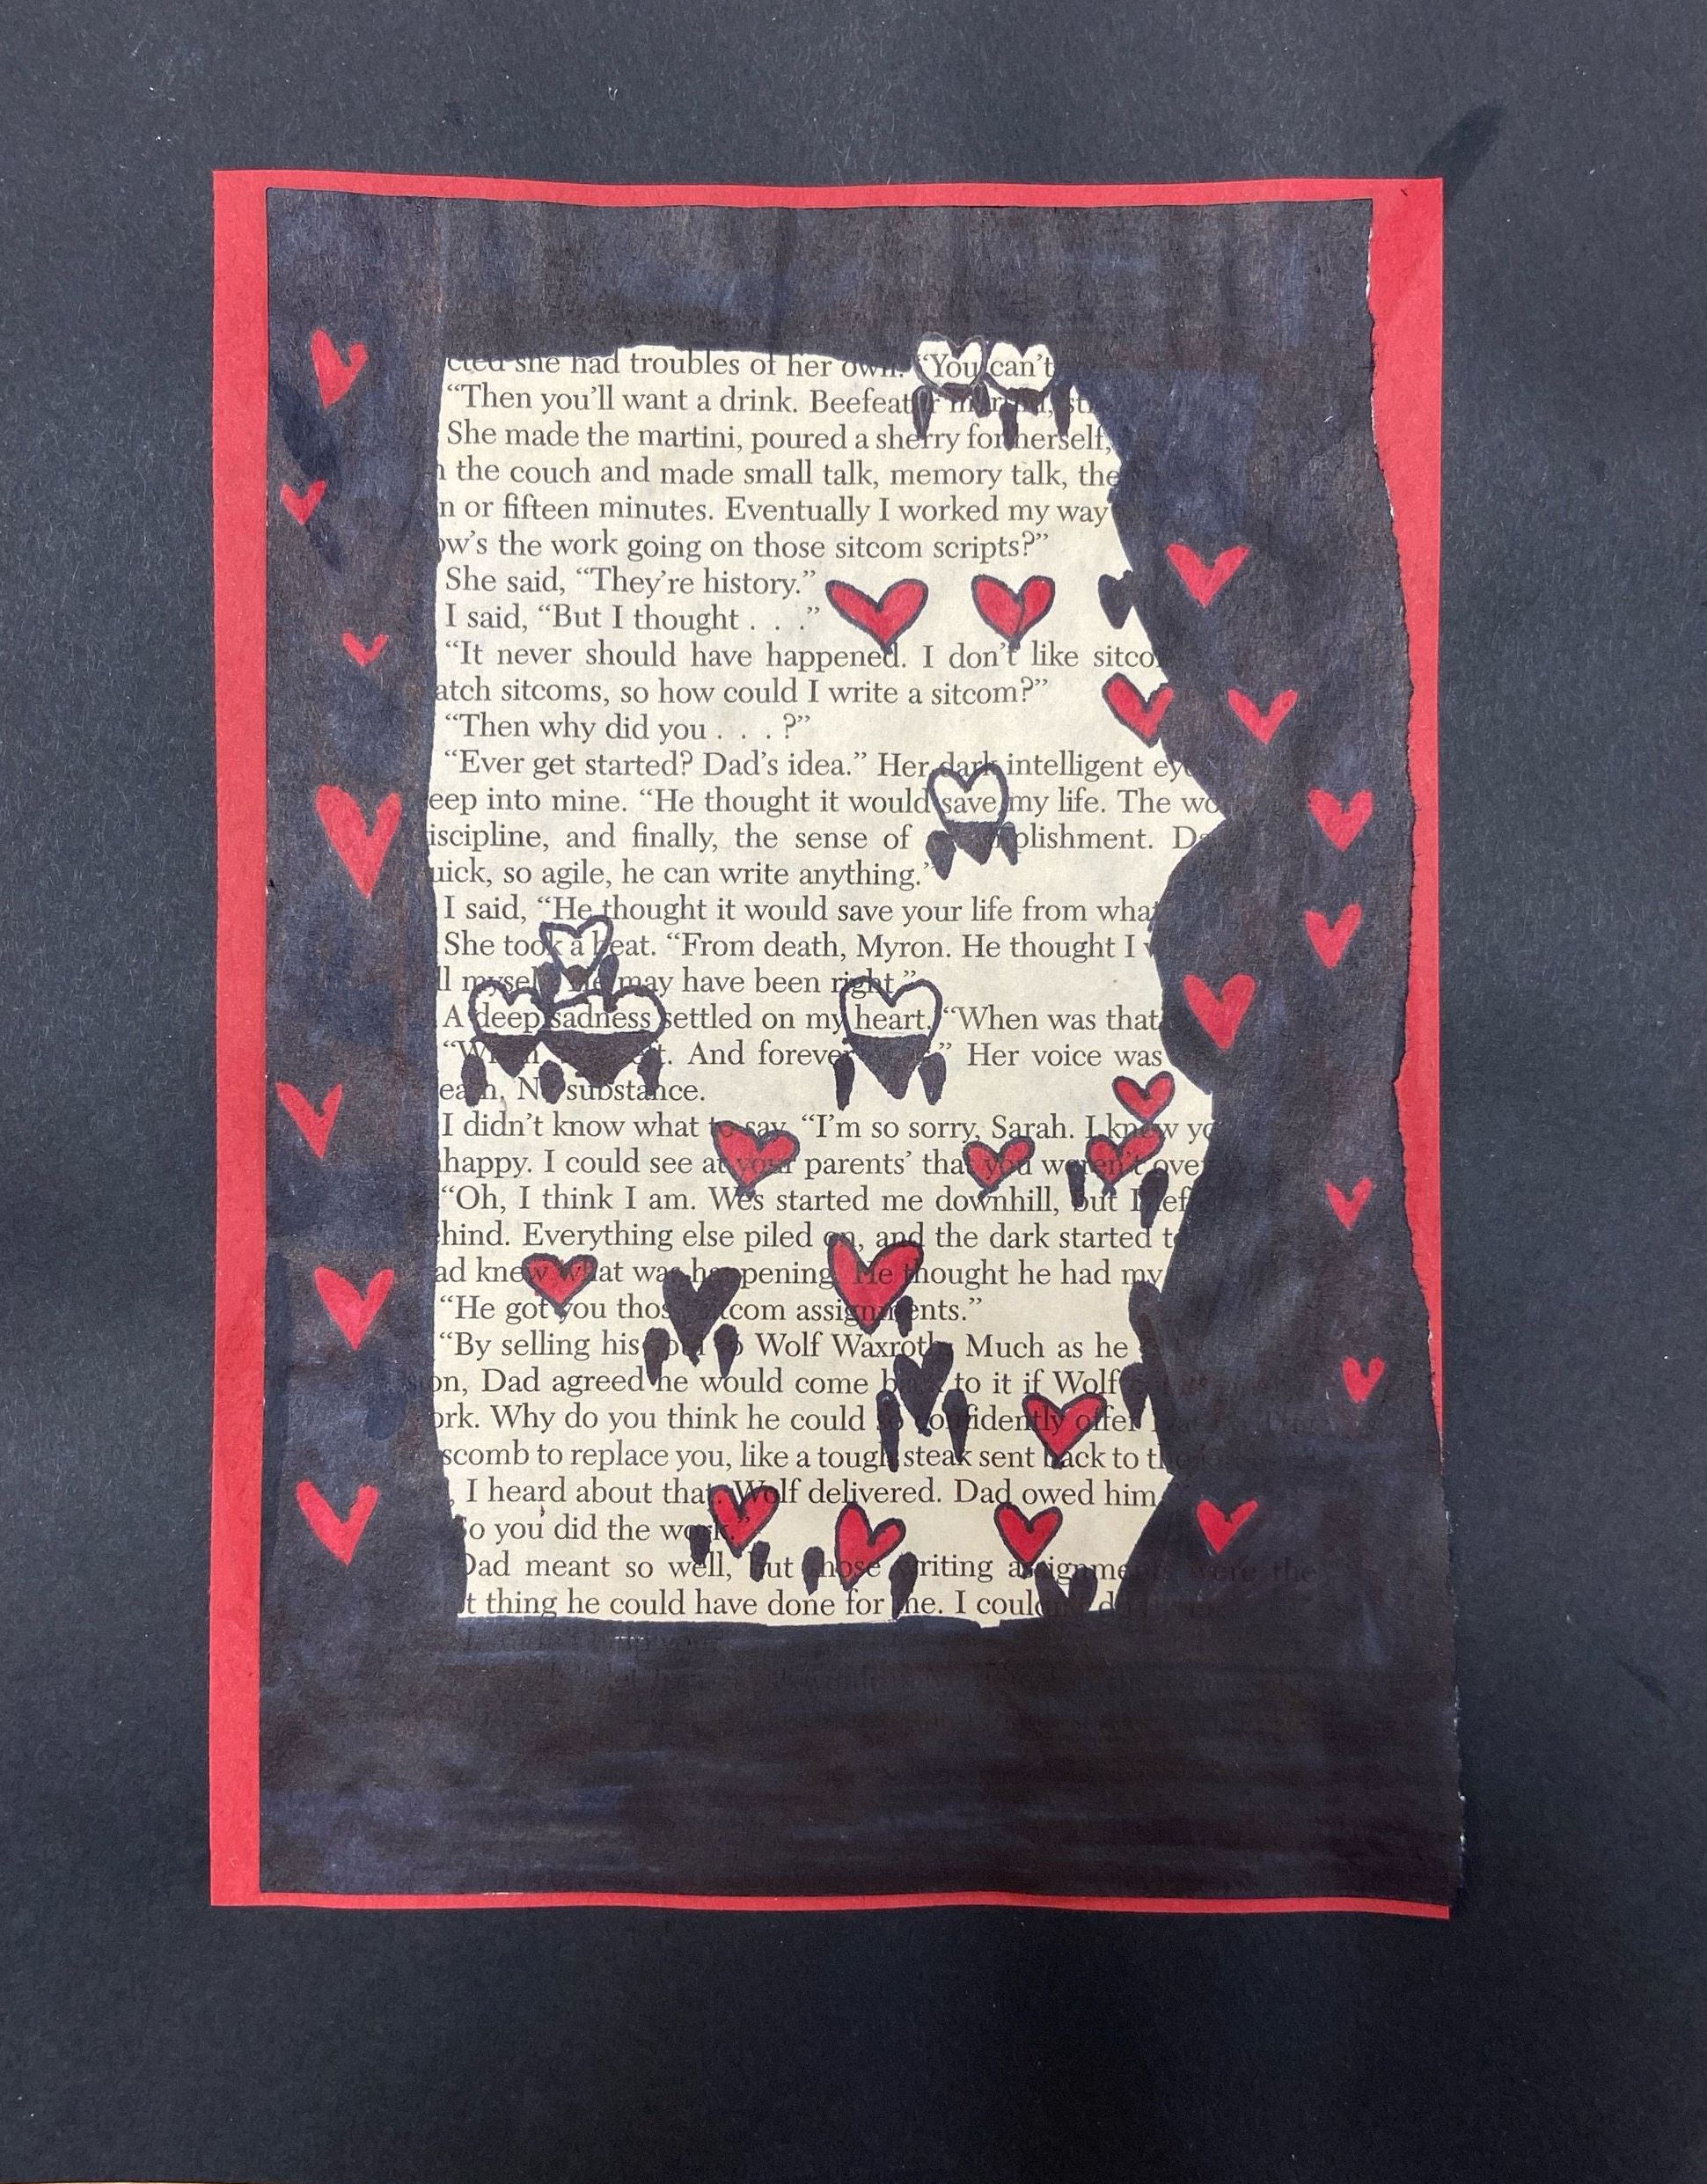 she had troubles of her own. “You can't
“Then you'll want a drink.
She made the martini, poured a sherry for herself,
the couch and made small talk, memory talk, the
or fifteen minutes. Eventually I worked my way
ow's the work going on those sitcom scripts?”
She said, “They're history.”
I said, “But I thought . . .”
“It never should have happened. I don't like
atch sitcoms, so how could I write a sitcom?”
“Then why did you . . . ?”
“Ever get started? Dad's idea.” Her dark intelligent
eep into mine. “He thought it would save my life. The
iscipline, and finally, the sense of plishment.
uick, so agile, he can write anything.”
I said, “He thought it would save your life from
She took a beat. “From death, Myron. He thought I
may have been right.”
A deep sadness settled on my heart. “When was that
And Her voice was
substance.
I didn't know what to say. “I'm so sorry, Sarah. I know
happy. I could see at your parents' that you weren't
“Oh, I think I am. Wes started me downhill, but I
hind. Everything else piled on, and the dark started
ad knew what was happening. He thought he had my
“He got you those sitcom assignments.”
“By selling his Wolf Waxroth. Much as he
on, Dad agreed he would come to it if Wolf
ork. Why do you think he could so confidently offer
scomb to replace you, like a tough steak sent back to
I heard about that. Wolf delivered. Dad owed him
So you did the work.”
Dad meant so well, but those writing assignments were the
t thing he could have done for me. I